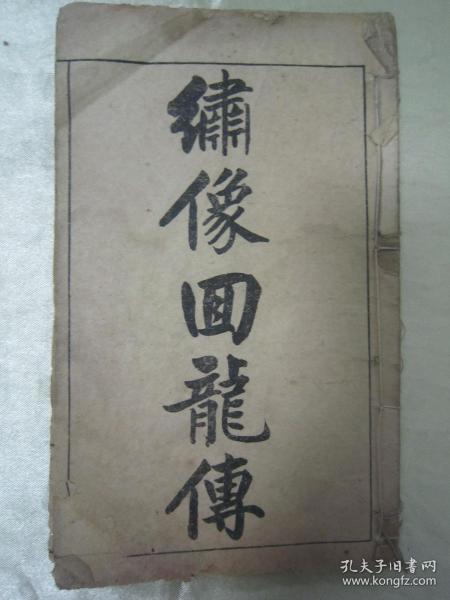 繡像囬龍傳
孔夫子旧书网
www.kongfz.com